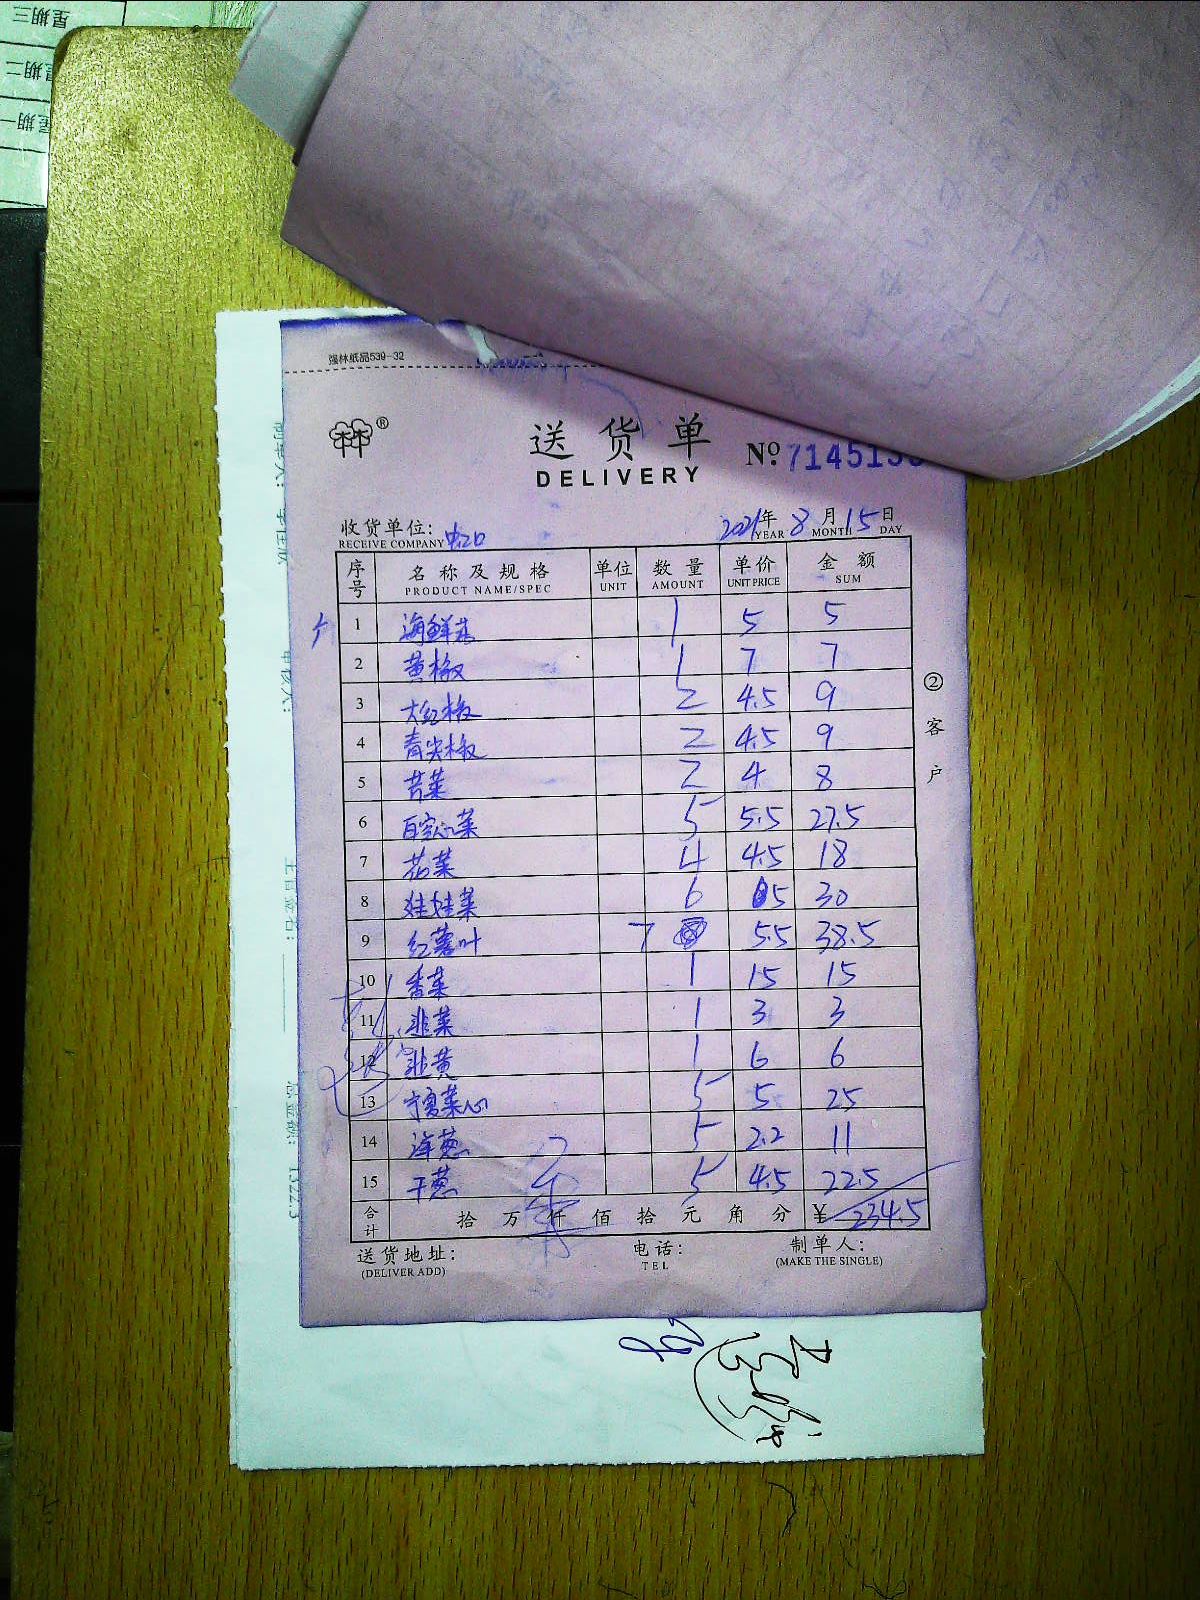 星期三
星期二
星期一
强林纸品539-32
林林®
送货单
DELIVERY
№ 714515
收货单位: 中心
RECEIVE COMPANY
2021年 8月 15日
YEAR MONTH DAY
序号 名称及规格 单位 数量 单价 金额
PRODUCT NAME/SPEC UNIT AMOUNT UNIT PRICE SUM
1 海鲜菇 1 5 5
2 黄椒 1 7 7
3 大红椒 2 4.5 9
4 青尖椒 2 4.5 9
5 芥菜 2 4 8
6 百家心菜 5 5.5 27.5
7 花菜 4 4.5 18
8 娃娃菜 6 5 30
9 红薯叶 7 5.5 38.5
10 香菜 1 15 15
11 韭菜 1 3 3
12 韭黄 1 6 6
13 宁夏菜心 5 5 25
14 洋葱 5 2.2 11
15 干葱 5 4.5 22.5
合计 拾 万 仟 佰 拾 元 角 分 ¥ 234.5
送货地址: 电话: 制单人:
(DELIVER ADD) TEL (MAKE THE SINGLE)
②客户
审核人:
主管签名:
总金额: 1322.5